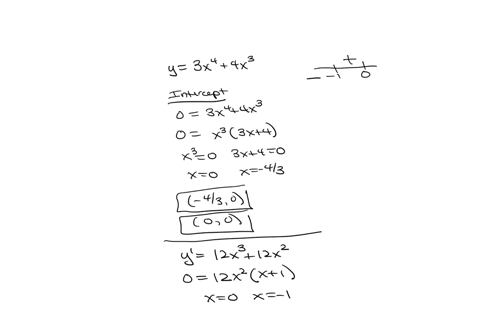 y = 3x⁴ + 4x³
+
— -1 0
Intercept
0 = 3x⁴+4x³
0 = x³(3x+4)
x³=0 3x+4=0
x=0 x=-4/3
(-4/3, 0)
(0,0)
y' = 12x³+12x²
0 = 12x²(x+1)
x=0 x=-1